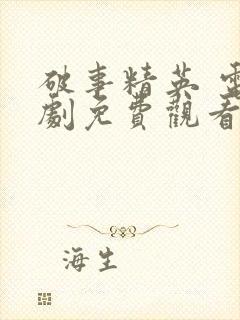 破事精英 電
劇免費觀看
海生